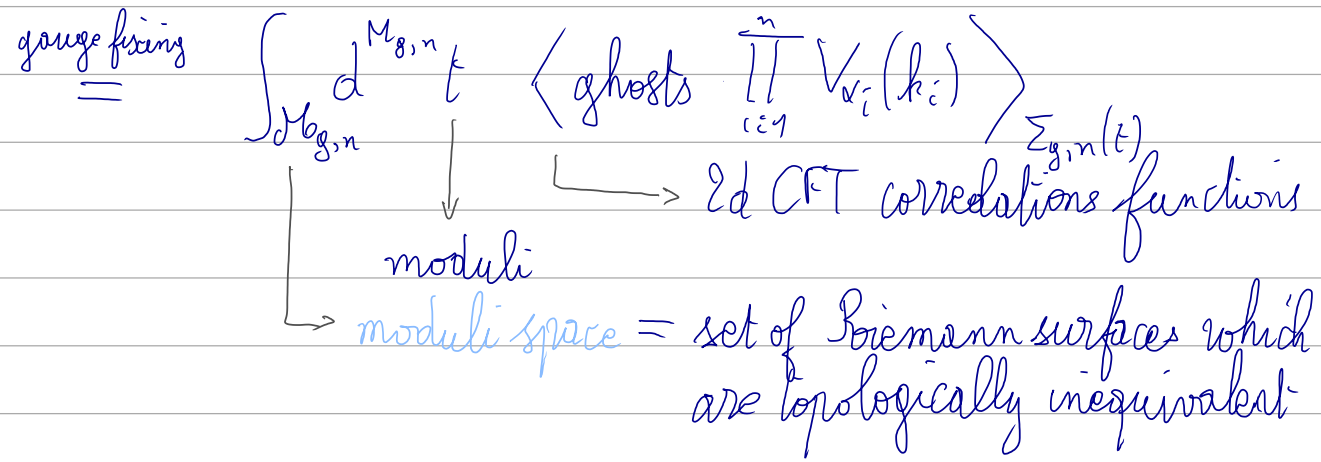 gauge fixing
= ∫_{ℳ_{g,n}} d^{M_{g,n}} t ⟨ ghosts ∏_{i=1}^{n} V_{α_i}(k_i) ⟩_{Σ_{g,n}(t)}
2d CFT correlations functions
moduli
moduli space = set of Riemann surfaces which
are topologically inequivalent